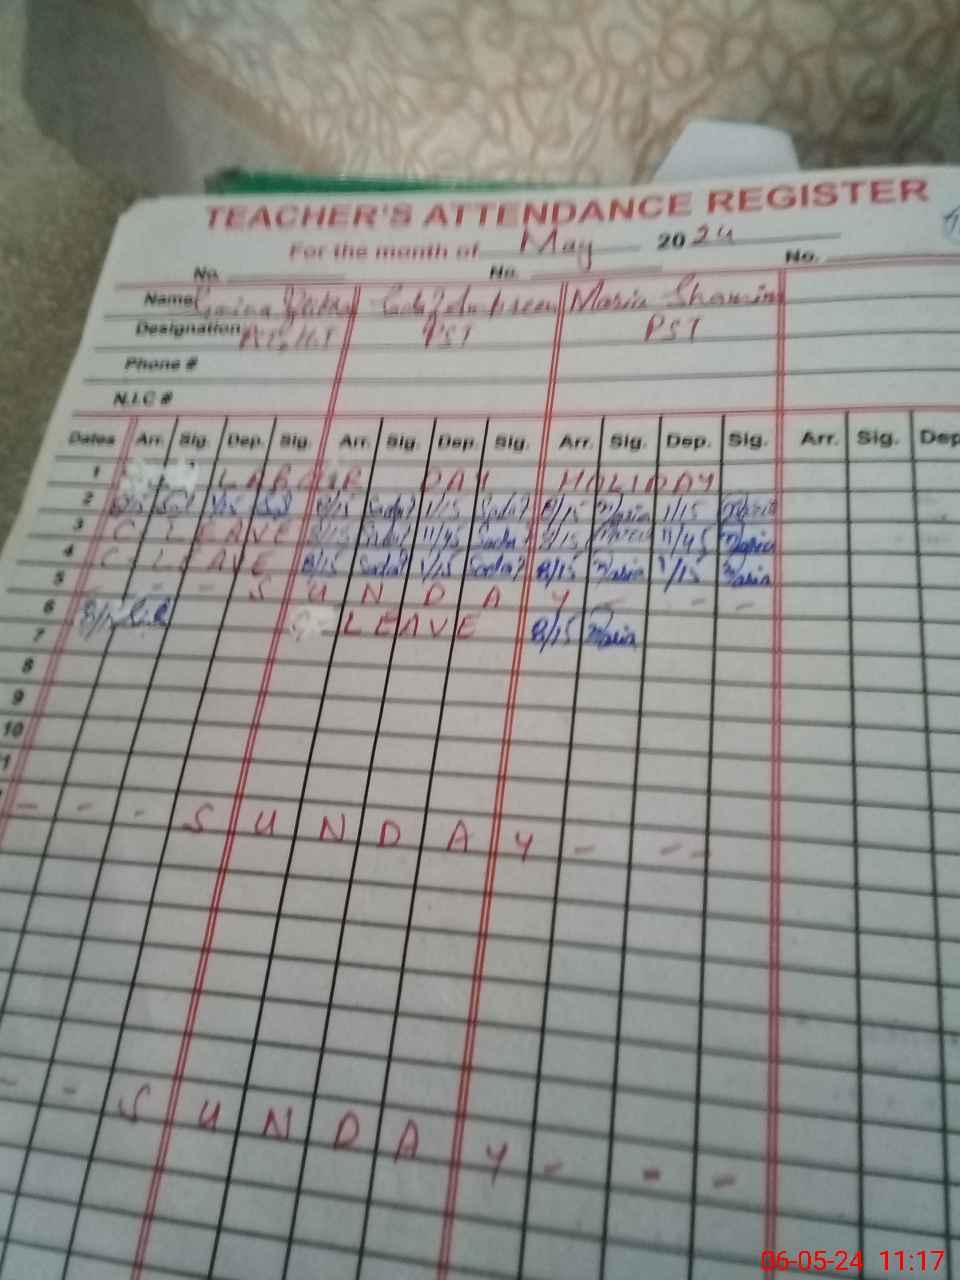 TEACHER'S ATTENDANCE REGISTER
For the month of May 2024
No. No. No.
Name Maria Shamim
Designation PST PST
Phone #
N.I.C #
Dates Arr. Sig. Dep. Sig. Arr. Sig. Dep. Sig. Arr. Sig. Dep. Sig. Arr. Sig. Dep
1 LABOUR DAY HOLIDAY
2 8/15 1/15 8/15 Sada? 1/15 Sada? 8/15 Maria 1/15 Maria
3 C LEAVE 8/15 Sada? 11/45 Sada? 8/15 Maria 11/45 Maria
4 C LEAVE 8/15 Sada? 1/15 Sada? 8/15 Maria 1/15 Maria
5 - - S U N D A Y - - -
6 LEAVE 8/15 Maria
7
8
9
10
- - - S U N D A Y - - -
- - S U N D A Y - - -
06-05-24 11:17